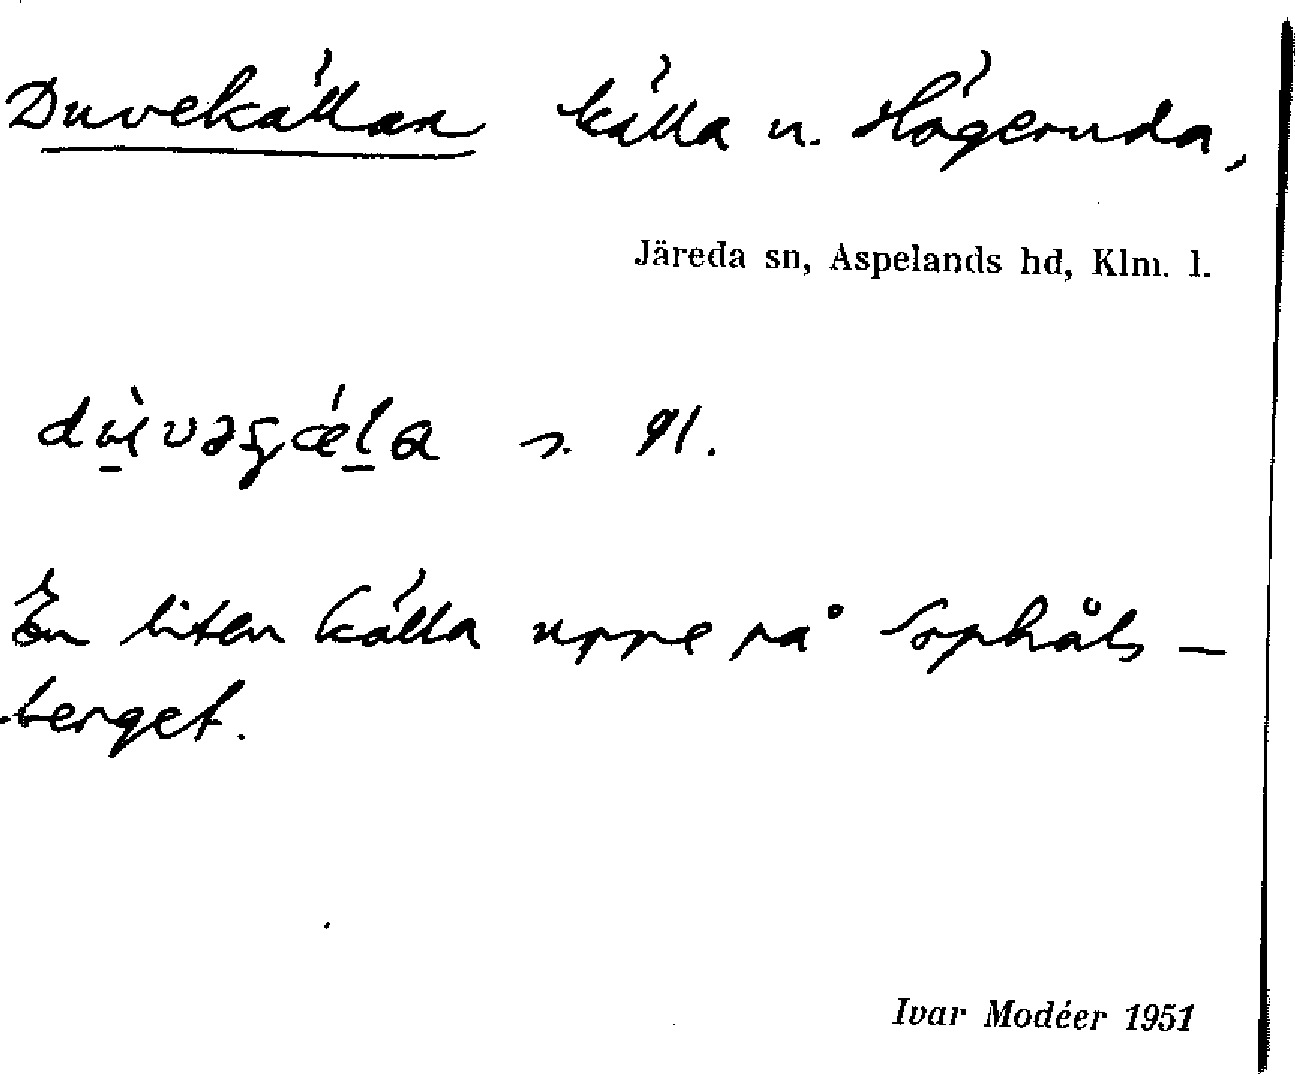 Duvekällan källa u. Högeruda,
Järeda sn, Aspelands hd, Klm. l.
En liten källa uppe på Sophåls-
berget.
Ivar Modéer 1951